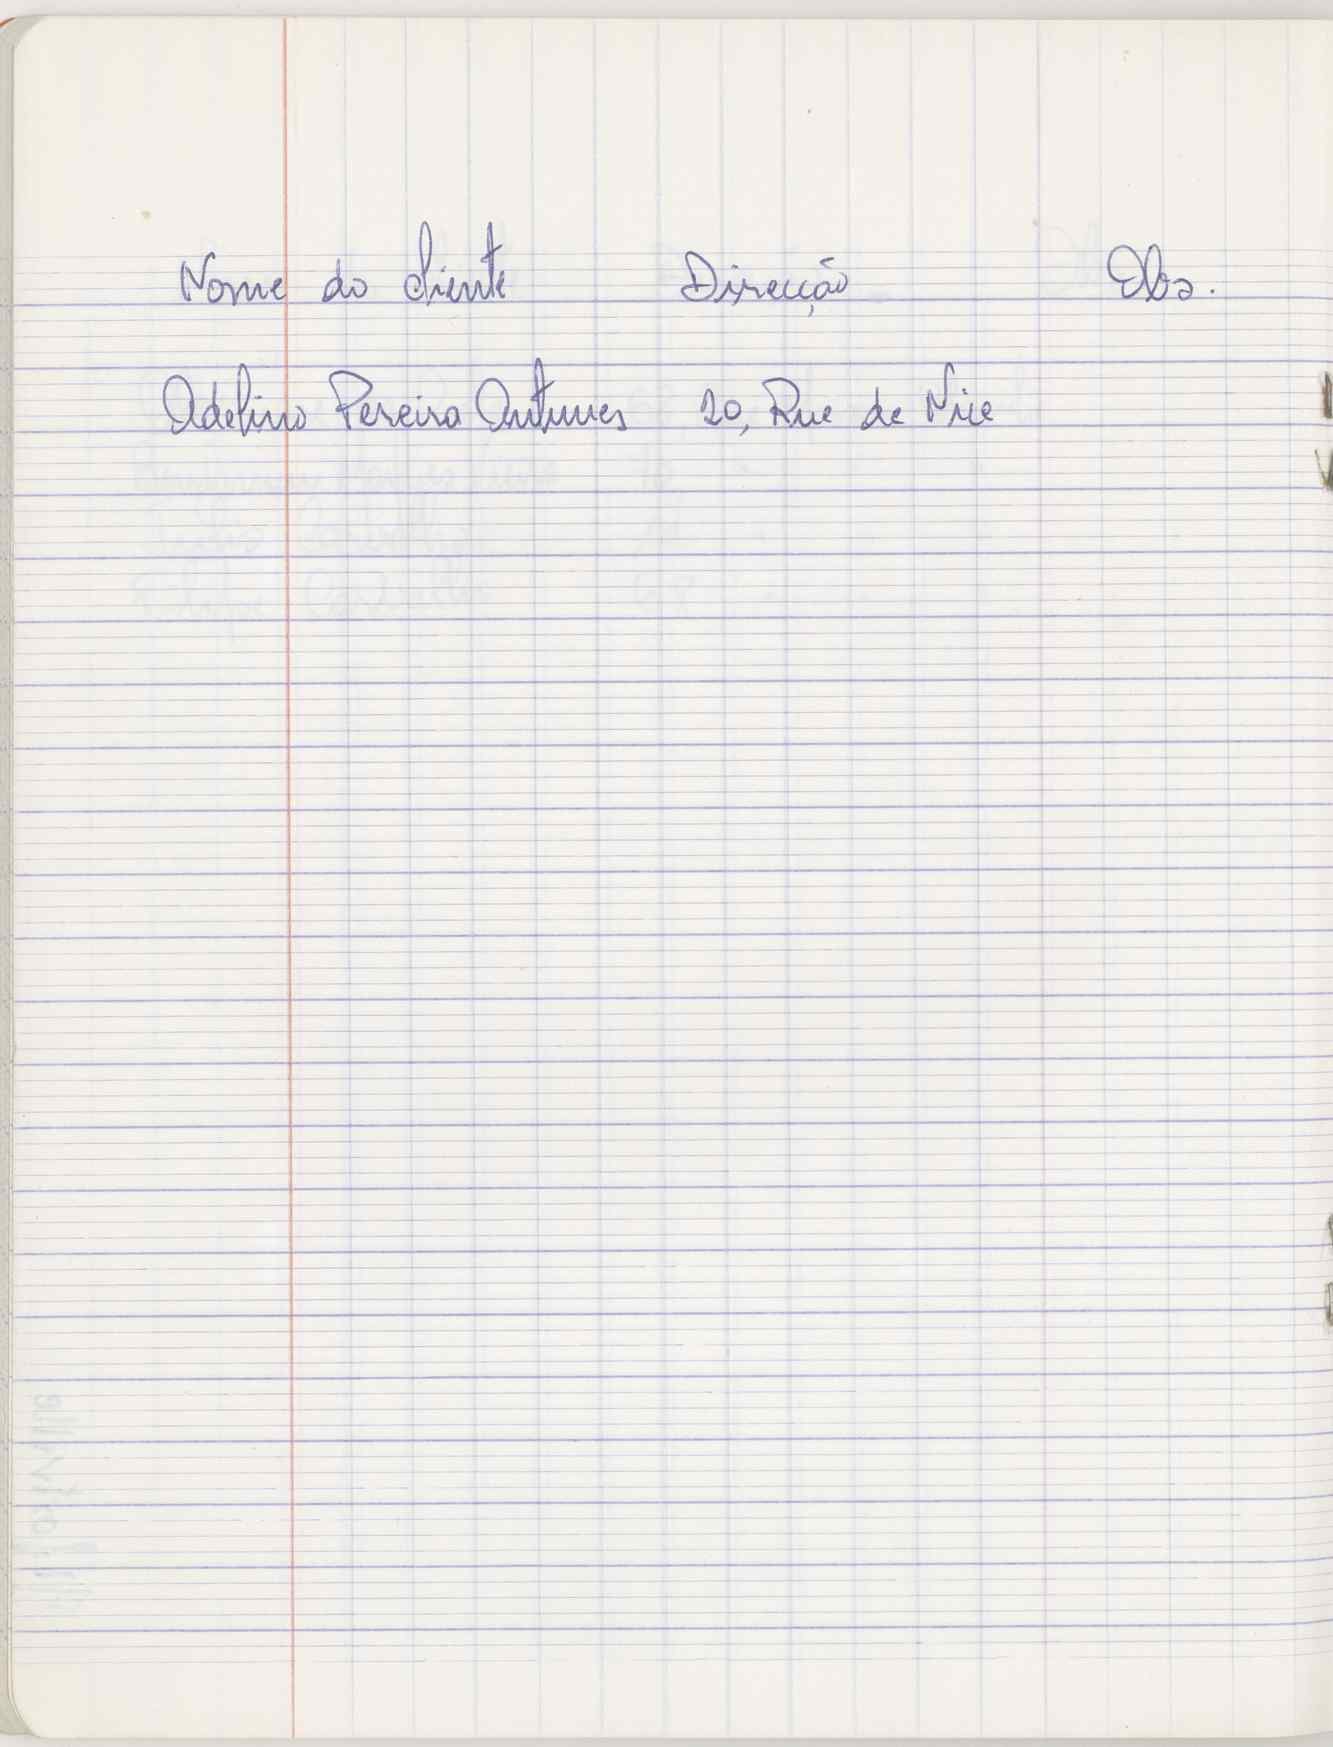 Nome do cliente Direcção Obs.
Adelino Pereira Antunes 20, Rue de Nice